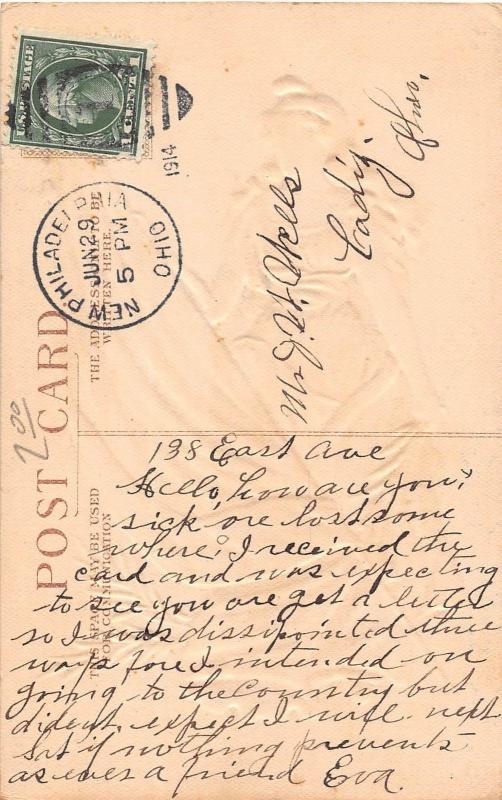 U.S. POSTAGE
1 CENT 1
NEW PHILADELPHIA OHIO
JUN 29
5 PM
1914
POST CARD
THE ADDRESS ONLY TO BE
WRITTEN HERE.
THIS SPACE MAY BE USED
FOR COMMUNICATION
2.00
Mr J. W. Wells
Cadiz,
Ohio.
138 East Ave
Hello, how are you?
sick, are lost some
where? I received the
card and was expecting
to see you are get a letter
so I was dissipointed three
ways, fore I intended on
going to the Country but
dident. expect I will next
Sat if nothing prevents
as ever a friend Eva.